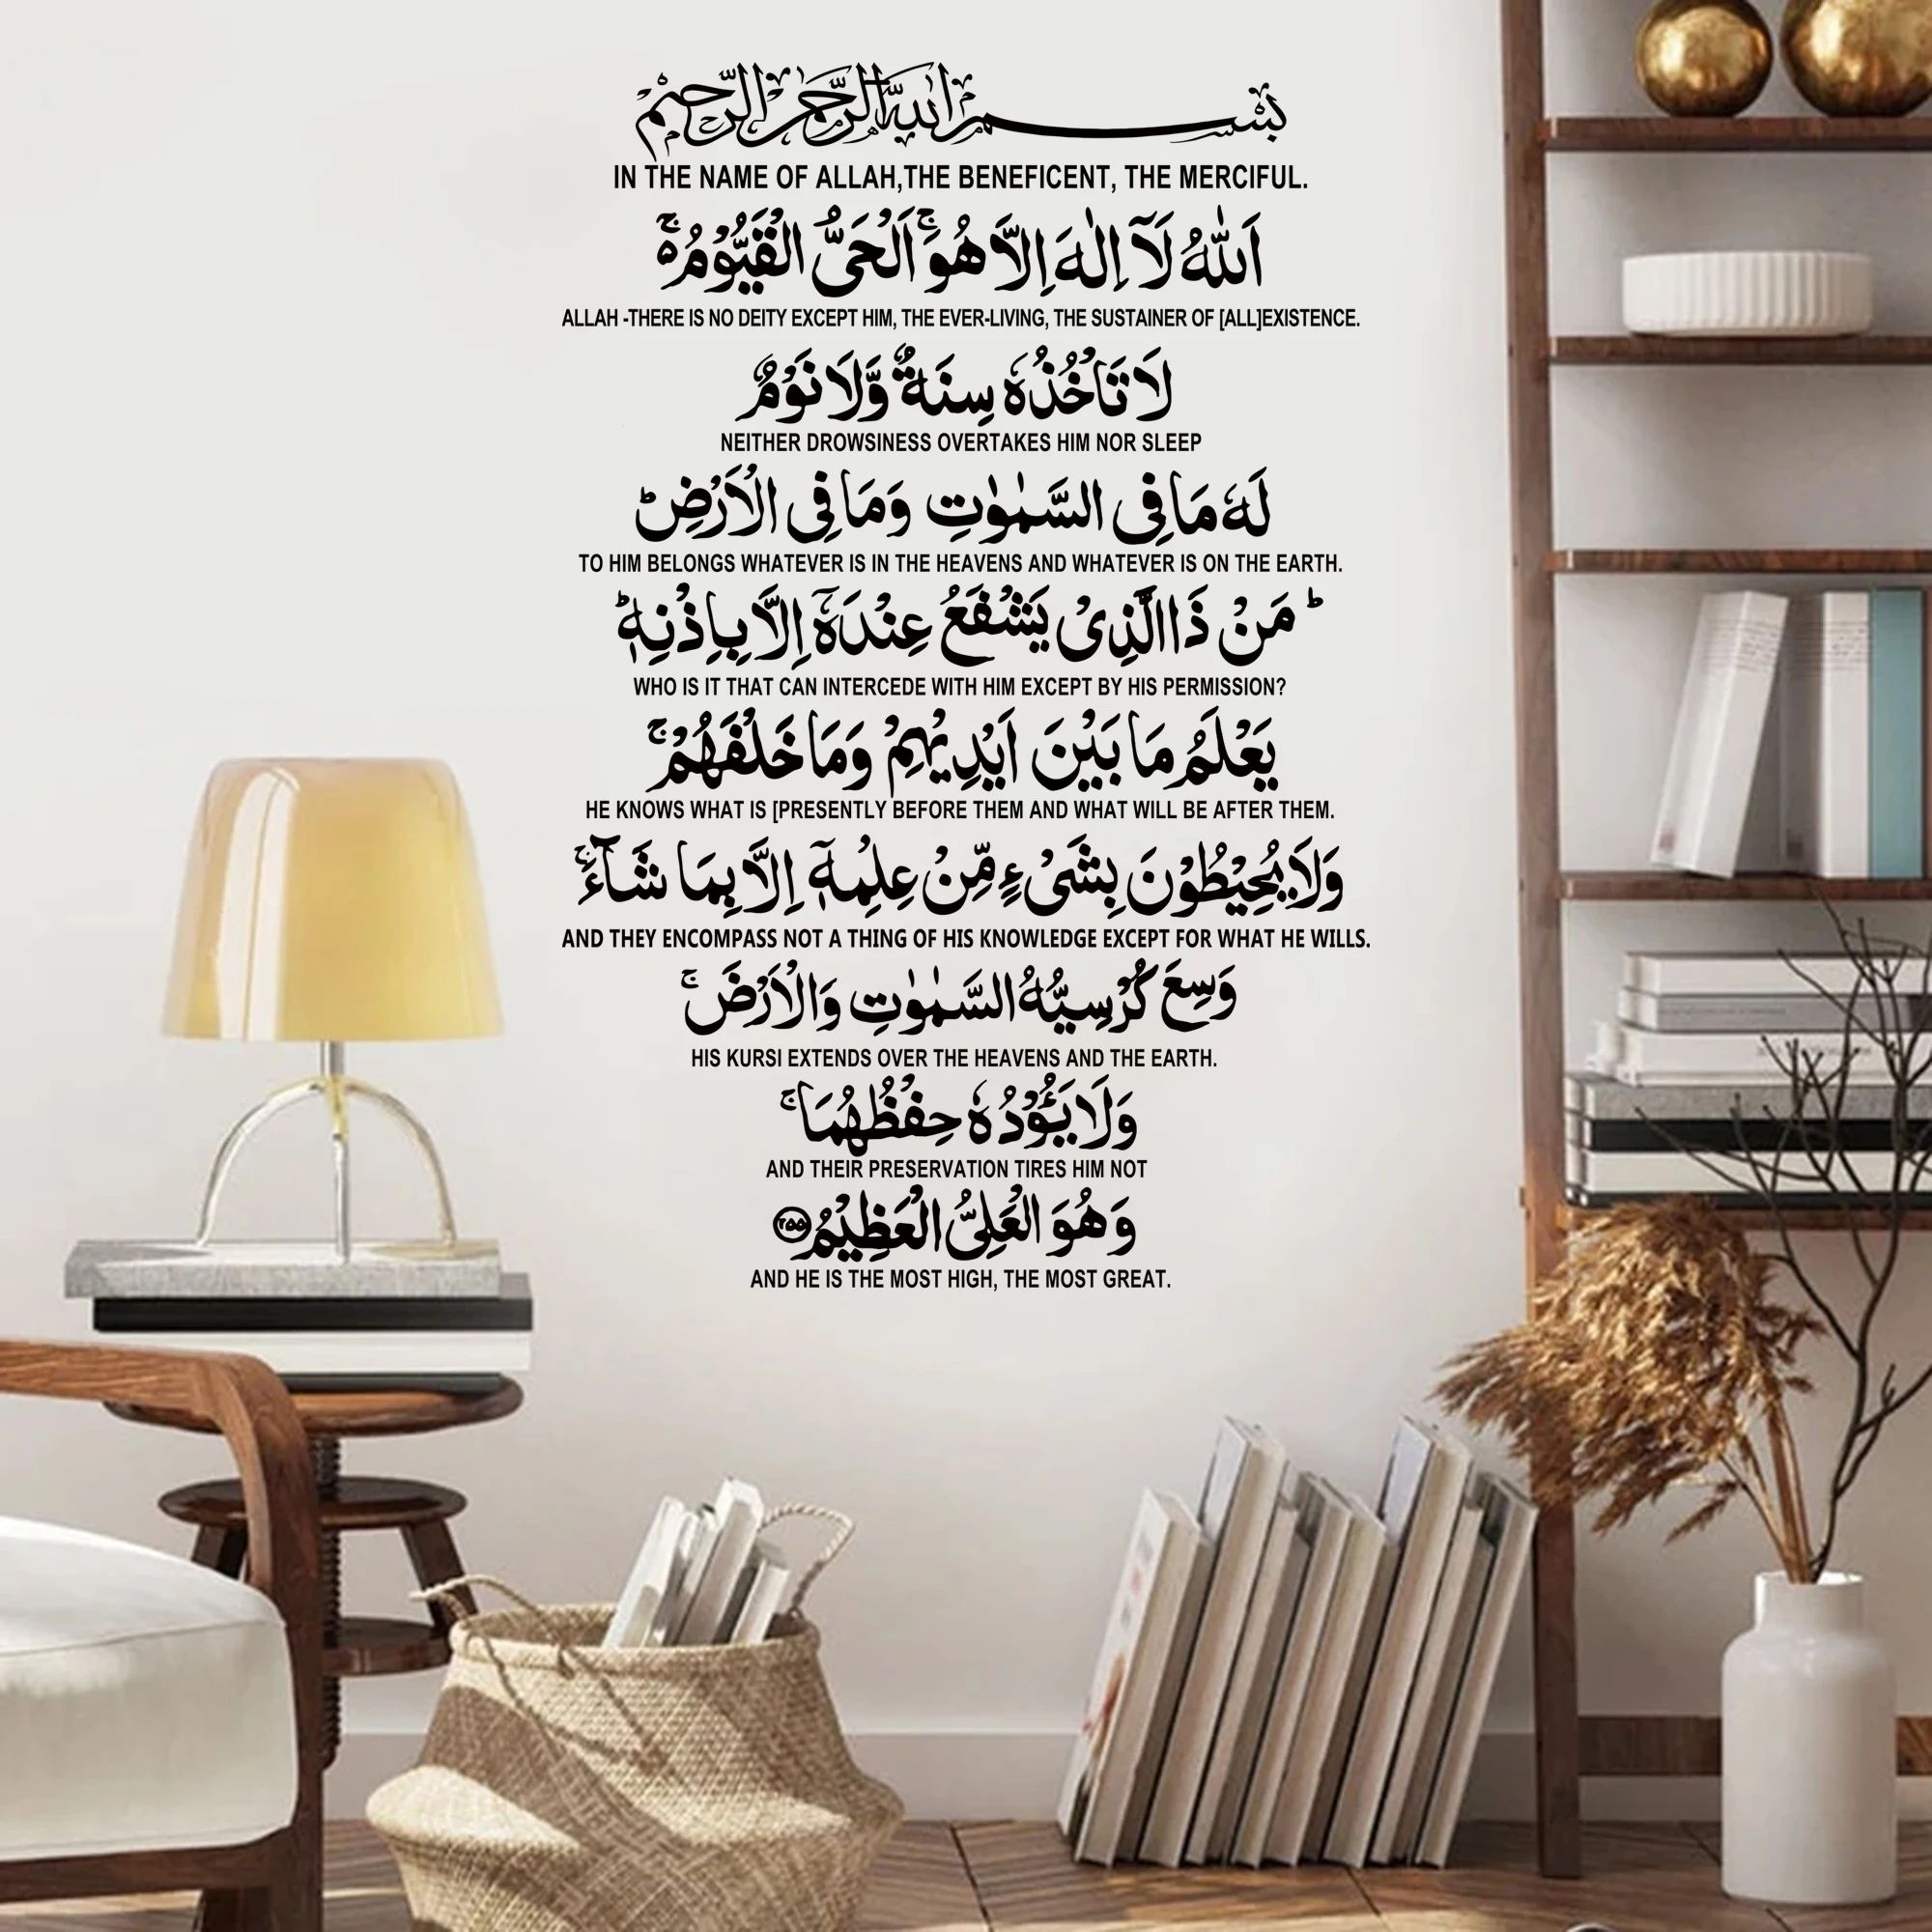 بِسْمِ اللهِ الرَّحْمٰنِ الرَّحِيْمِ
IN THE NAME OF ALLAH,THE BENEFICENT, THE MERCIFUL.
اَللّٰهُ لَآ اِلٰهَ اِلَّا هُوَ ۚ اَلْحَىُّ الْقَيُّوْمُ ۚ
ALLAH -THERE IS NO DEITY EXCEPT HIM, THE EVER-LIVING, THE SUSTAINER OF [ALL]EXISTENCE.
لَا تَاْخُذُهٗ سِنَةٌ وَّلَا نَوْمٌ
NEITHER DROWSINESS OVERTAKES HIM NOR SLEEP
لَهٗ مَا فِى السَّمٰوٰتِ وَمَا فِى الْاَرْضِ ؕ
TO HIM BELONGS WHATEVER IS IN THE HEAVENS AND WHATEVER IS ON THE EARTH.
ؕ مَنْ ذَا الَّذِىْ يَشْفَعُ عِنْدَهٗٓ اِلَّا بِاِذْنِهٖ ؕ
WHO IS IT THAT CAN INTERCEDE WITH HIM EXCEPT BY HIS PERMISSION?
يَعْلَمُ مَا بَيْنَ اَيْدِيْهِمْ وَمَا خَلْفَهُمْ ۚ
HE KNOWS WHAT IS [PRESENTLY BEFORE THEM AND WHAT WILL BE AFTER THEM.
وَلَا يُحِيْطُوْنَ بِشَىْءٍ مِّنْ عِلْمِهٖٓ اِلَّا بِمَا شَآءَ ۚ
AND THEY ENCOMPASS NOT A THING OF HIS KNOWLEDGE EXCEPT FOR WHAT HE WILLS.
وَسِعَ كُرْسِيُّهُ السَّمٰوٰتِ وَالْاَرْضَ ۚ
HIS KURSI EXTENDS OVER THE HEAVENS AND THE EARTH.
وَلَا يَـُٔوْدُهٗ حِفْظُهُمَا ۚ
AND THEIR PRESERVATION TIRES HIM NOT
وَهُوَ الْعَلِىُّ الْعَظِيْمُ ٢٥٥
AND HE IS THE MOST HIGH, THE MOST GREAT.